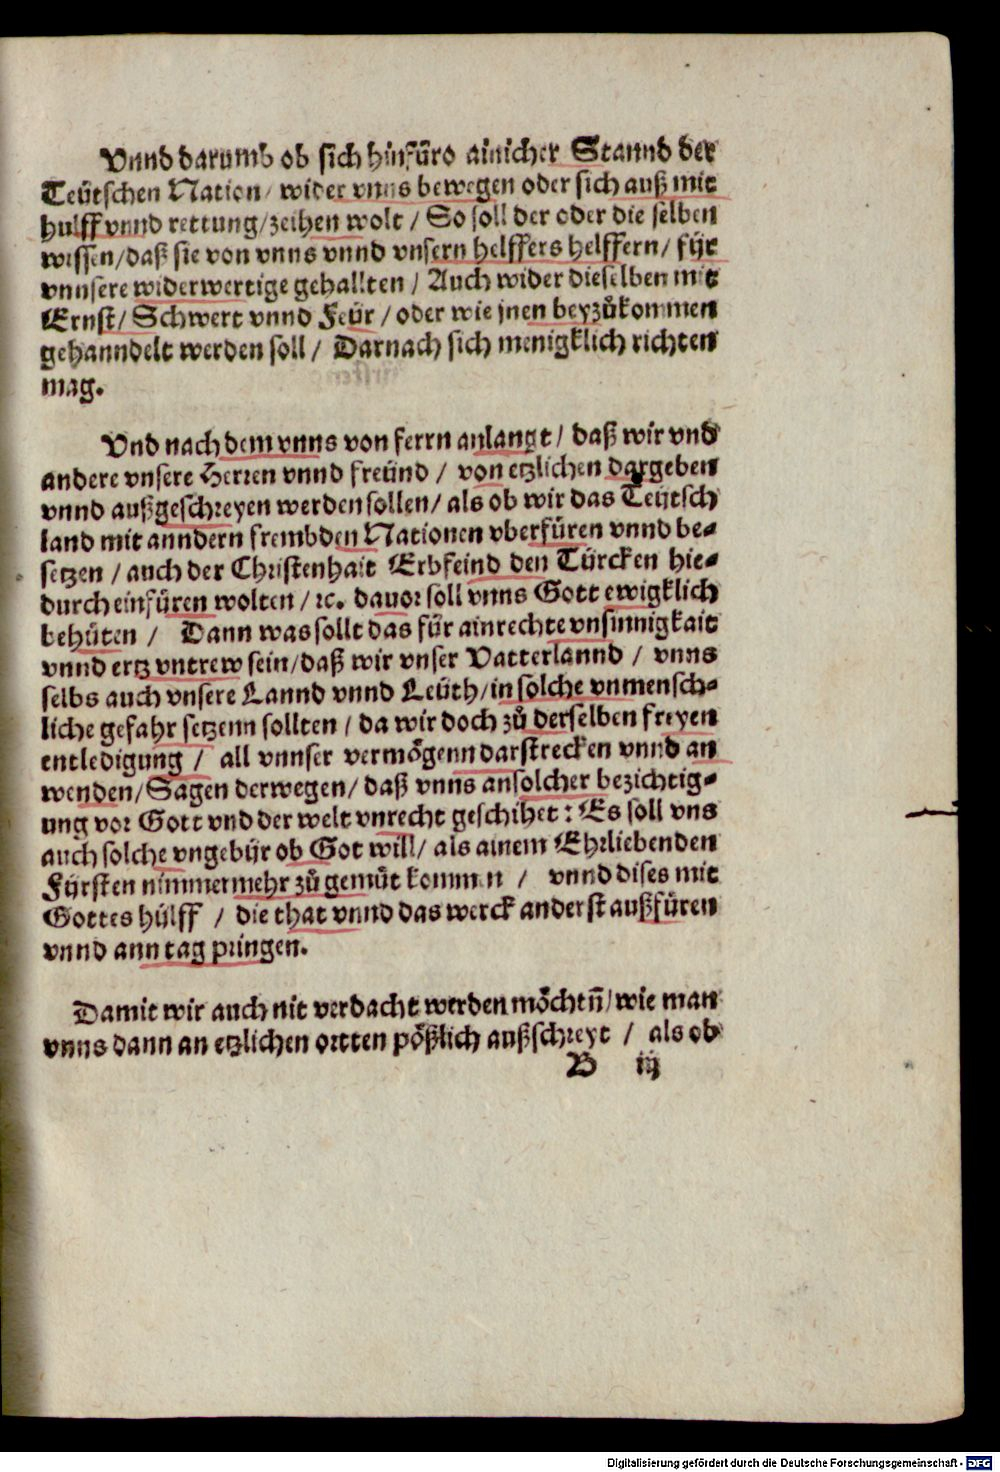 Vnnd darumb ob sich hinfüro ainicher Stannd der
Teütschen Nation / wider vnns bewegen oder sich auß mit
hulff vnnd rettung / zeihen wolt / So soll der oder die selben
wissen / daß sie von vnns vnnd vnsern helffers helffern / für
vnnsere widerwertige gehallten / Auch wider dieselben mit
Ernst / Schwert vnnd Feür / oder wie jnen beyzůkommen
gehanndelt werden soll / Darnach sich menigklich richten
mag.
Vnd nach dem vnns von ferrn anlangt / daß wir vnd
andere vnsere Herren vnnd freünd / von etzlichen dargeben
vnnd außgeschreyen werden sollen / als ob wir das Teutsch
land mit anndern frembden Nationen vberfüren vnnd be-
setzen / auch der Christenhait Erbfeind den Türcken hie-
durch einfüren wolten / ꝛc. dauor soll vnns Gott ewigklich
behüten / Dann was sollt das für ain rechte vnsinnigkait
vnnd ertz vntrew sein / daß wir vnser Vatterlannd / vnns
selbs auch vnsere Lannd vnnd Leüth / in solche vnmensch-
liche gefahr setzenn sollten / da wir doch zů derselben freyen
entledigung / all vnnser vermögenn darstrecken vnnd an
wenden / Sagen derwegen / daß vnns an solcher bezichtig-
ung vor Gott vnd der welt vnrecht geschihet : Es soll vns
auch solche vngebür ob Got will / als ainem Ehrliebenden
Fürsten nimmermehr zů gemüt kommen / vnnd dises mit
Gottes hülff / die that vnnd das werck anderst außfüren
vnnd ann tag pringen.
Damit wir auch nit verdacht werden möchtñ / wie man
vnns dann an etzlichen ortten pößlich außschreyt / als ob
B iij
Digitalisierung gefördert durch die Deutsche Forschungsgemeinschaft - DFG